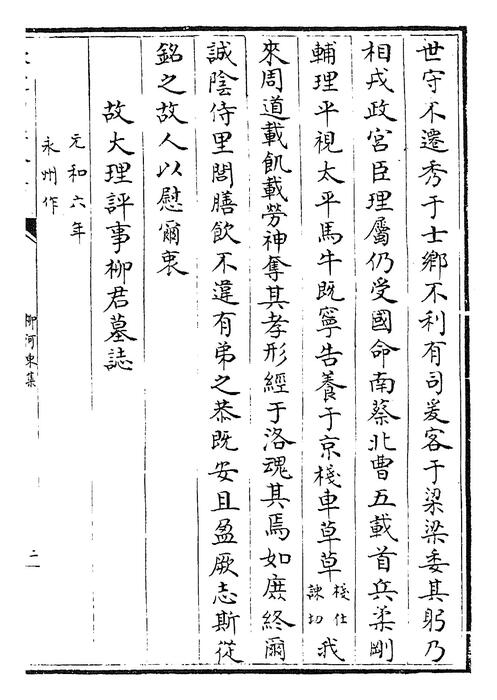 世守不遷秀于士鄉不利有司爰客于梁梁委其躬乃
相戎政宮臣理屬仍受國命南蔡北曹五載首兵柔剛
輔理平視太平馬牛既寧告養于京棧車草草棧仕諫切我
來周道載飢載勞神奪其孝形經于洛魂其焉如庶終爾
誠陰侍里閭膳飲不違有弟之恭既安且盈厥志斯從
銘之故人以慰爾衷
故大理評事柳君墓誌
元和六年
永州作
柳河東集
二